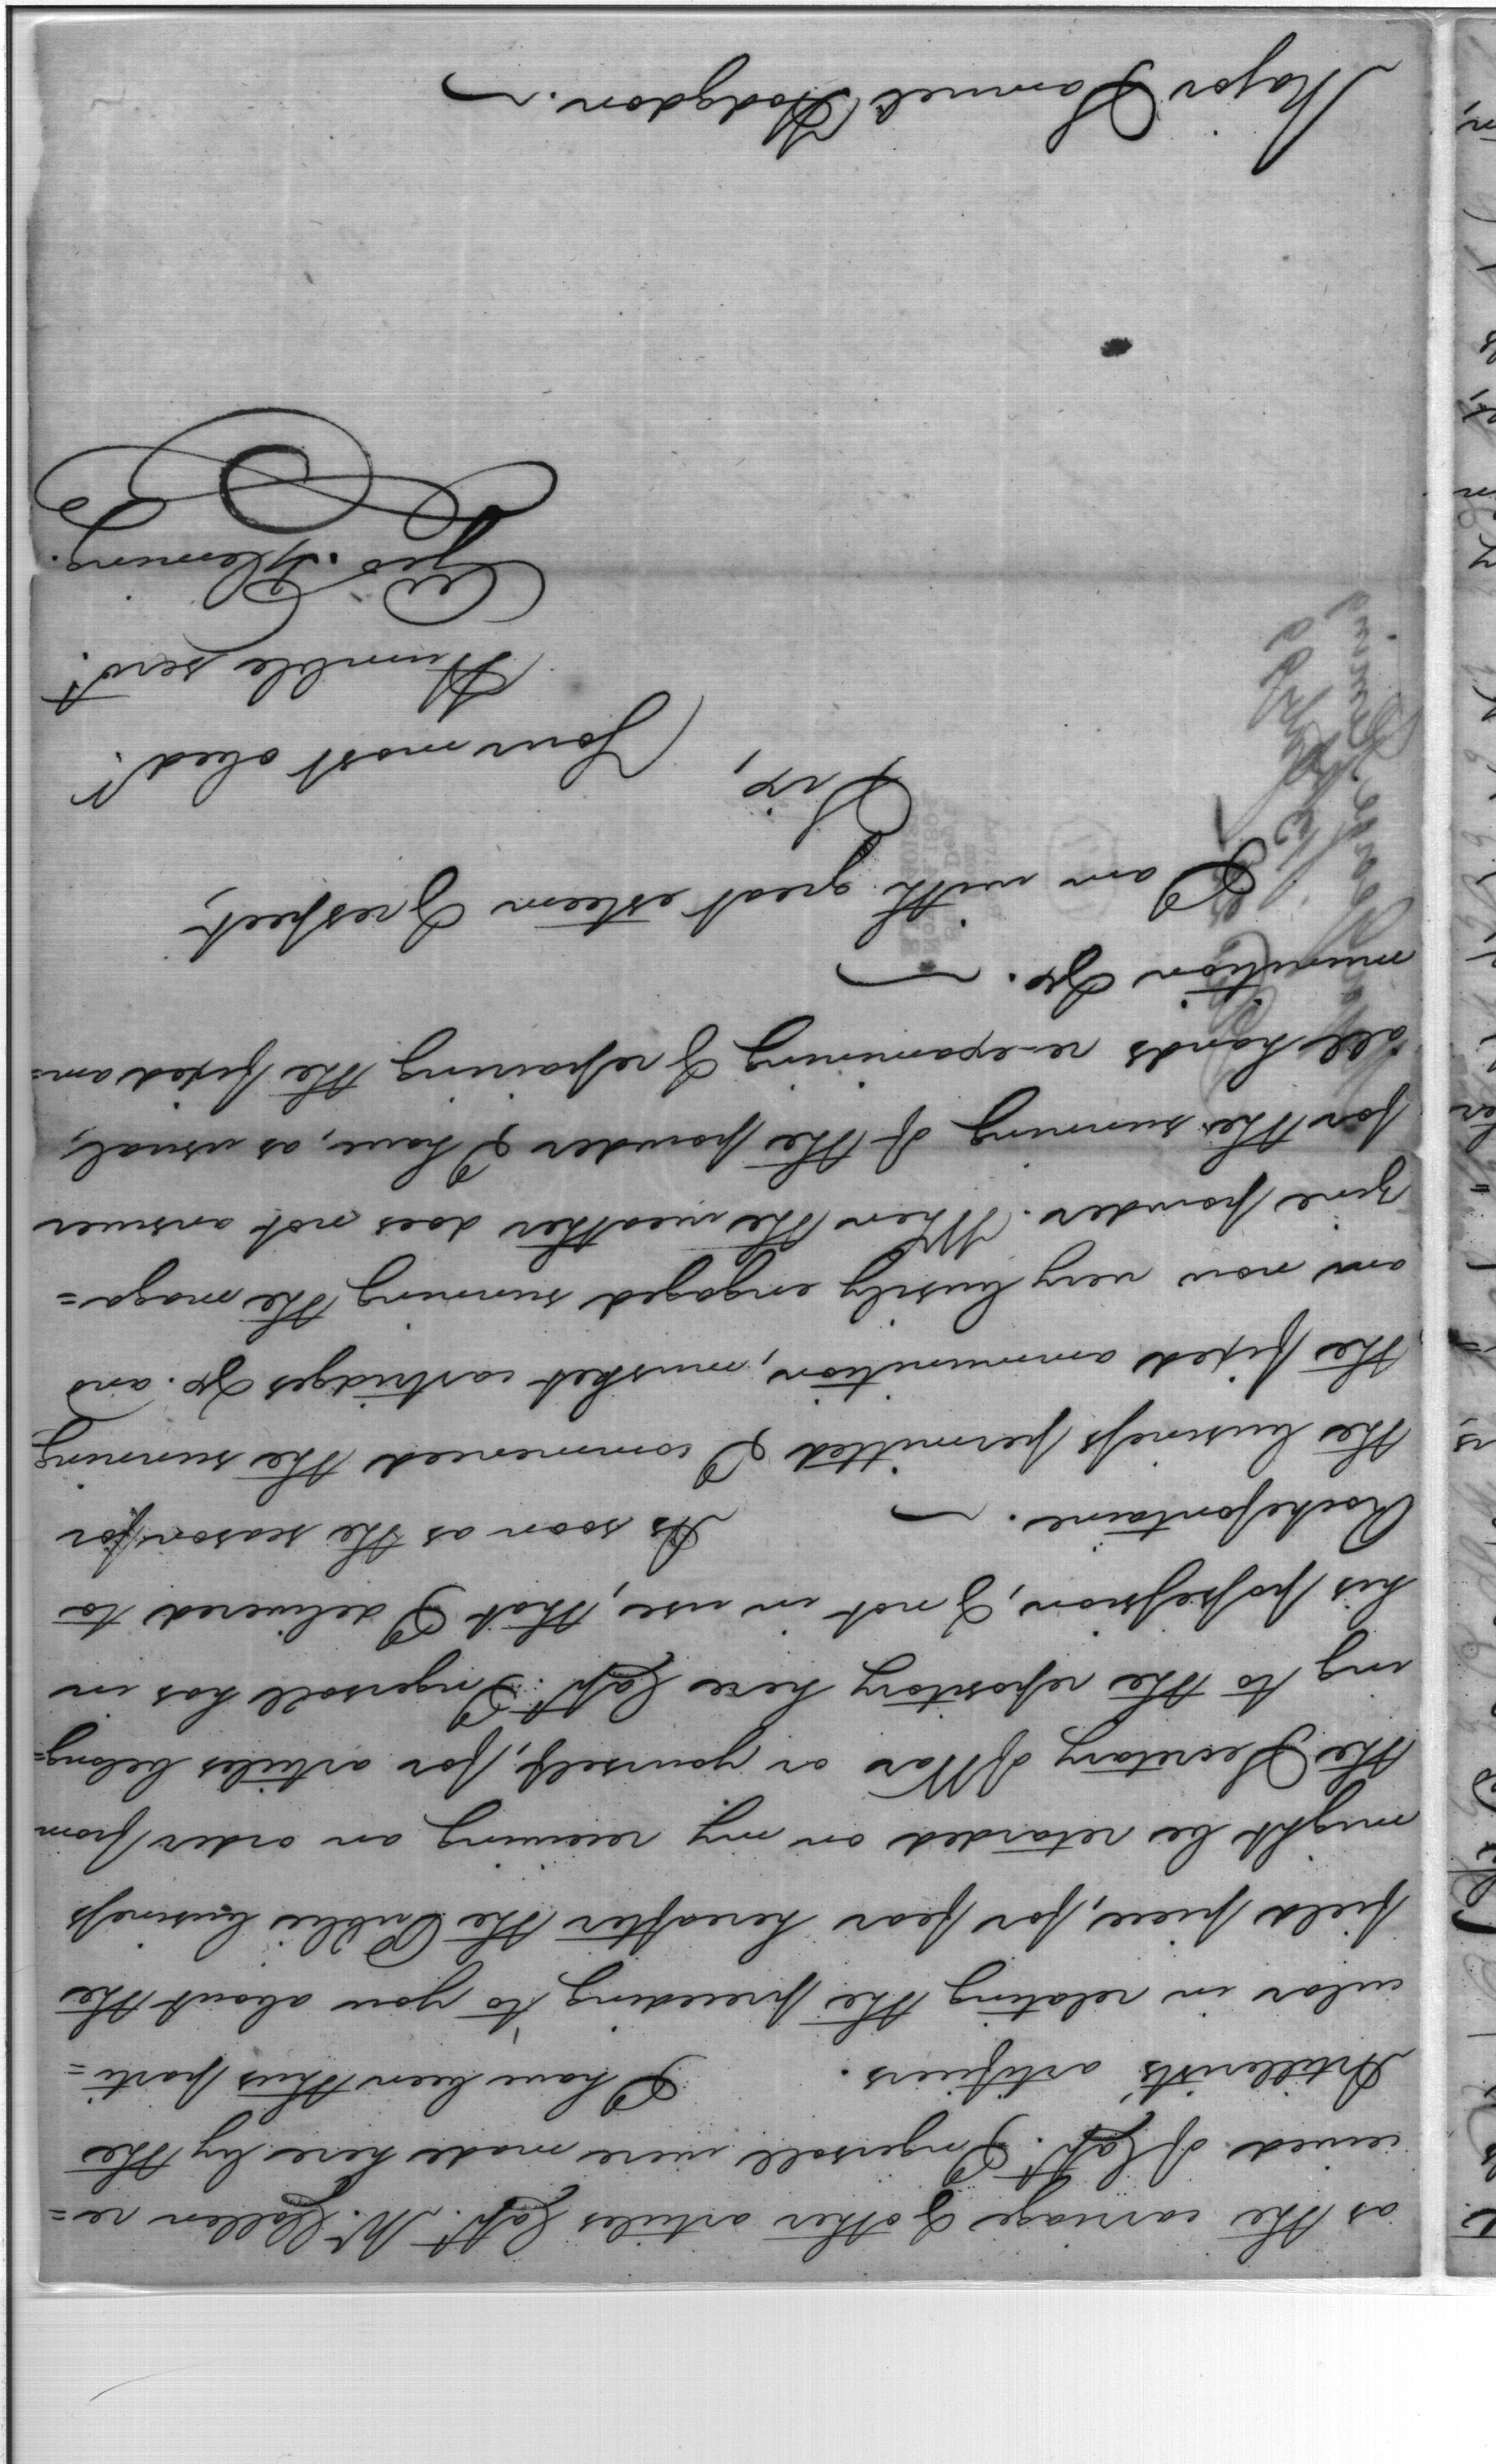 as the carriage & other articles Capt. McCallen re=
ceived of Capt. Ingersoll were made here by the
Artillerists artificers. I have been thus parti=
cular in relating the preceding to you about the
field piece, for fear hereafter the Public business
might be retarded on my receiving an order from
the Secretary of War or yourself, for articles belong=
ing to the repository here Capt. Ingersoll has in
his possession, & not in use, that I delivered to
Rochefontaine. As soon as the season for
the business permitted I commenced the sunning
the fixed ammunition, musket cartridges &c. and
am now very busily engaged sunning the maga=
zine powder. When the weather does not answer
for the sunning of the powder I have, as usual,
all hands re-examining & repairing the fixed am=
munition &c.
I am with great esteem & respect,
Sir,
Your most obedt.
Humble servt.
Geo. Fleming.
Major Samuel Hodgdon.